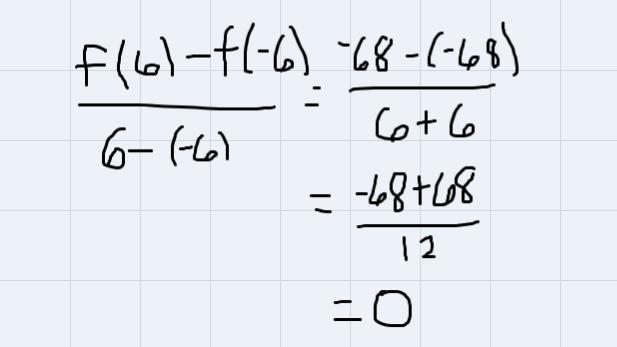 f(6) - f(-6) / 6 - (-6) = -68 - (-68) / 6 + 6
= -68 + 68 / 12
= 0